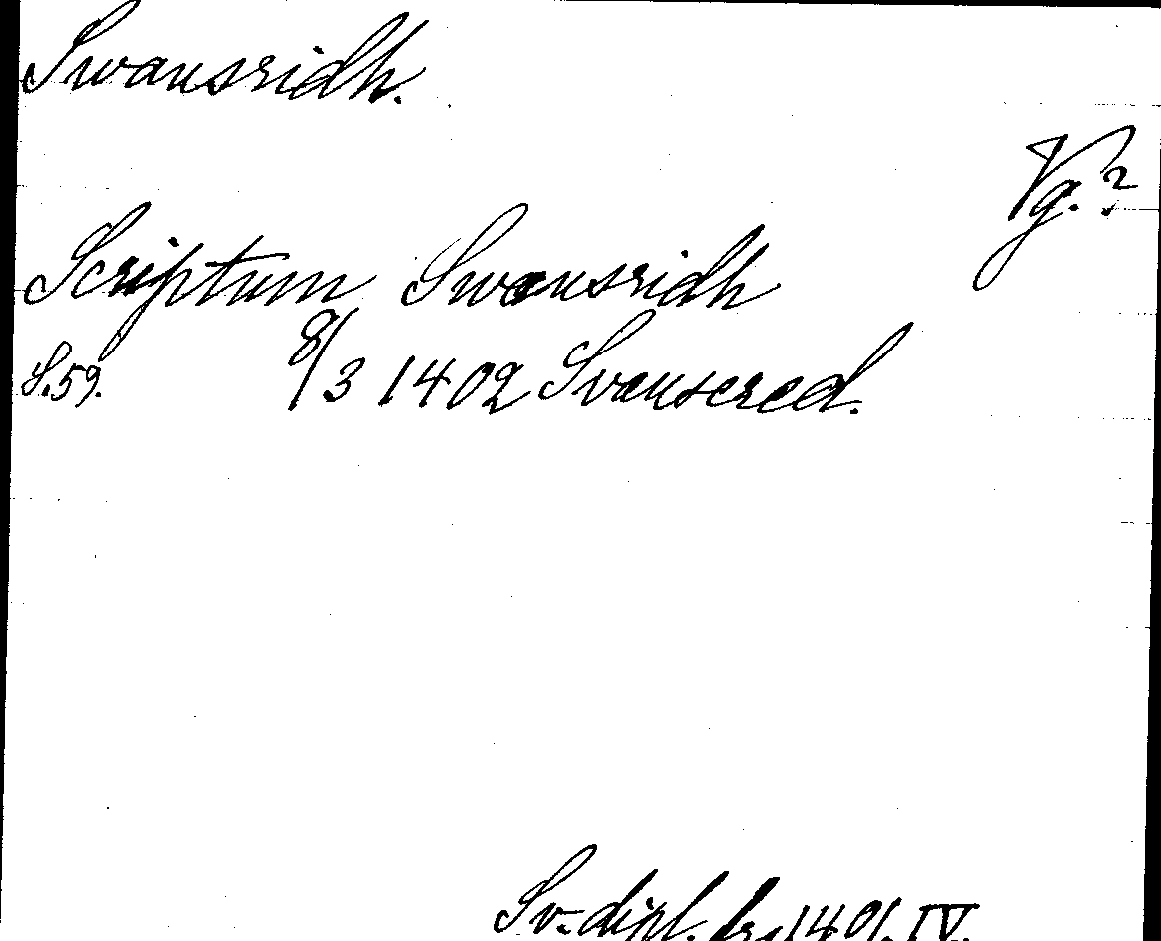 Swansridh.
Vg.?
Scriptum Swansridh
S.59. 8/3 1402 Svansered.
Sv. dipl. fr. 1401. IV.